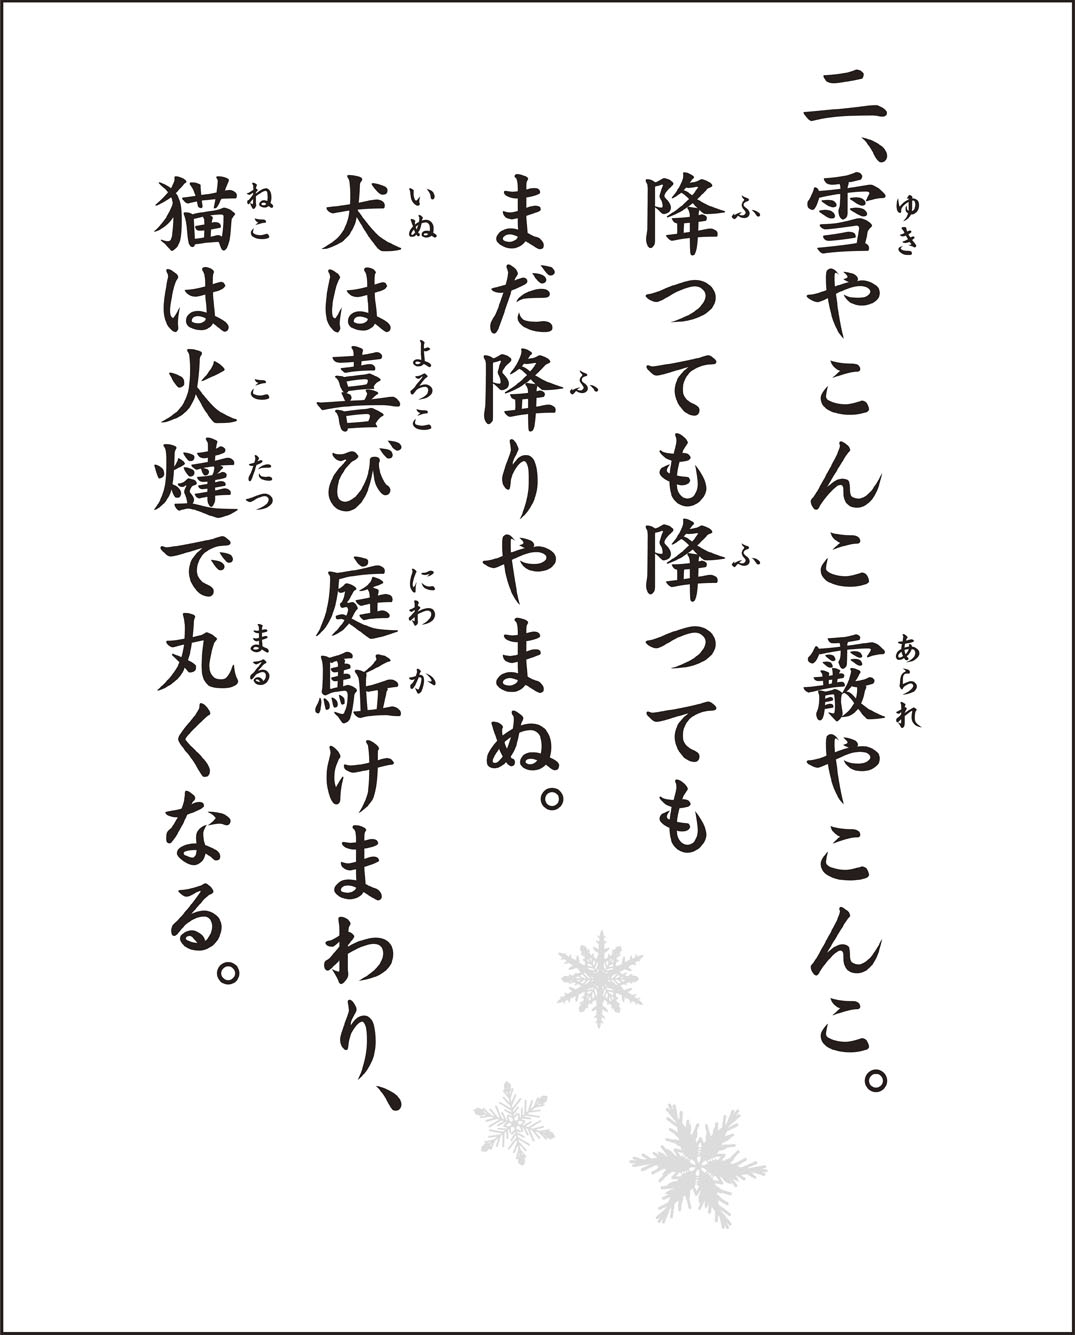 二、雪やこんこ 霰やこんこ。
降つても降つても
まだ降りやまぬ。
犬は喜び 庭駈けまわり、
猫は火燵で丸くなる。
ゆき
あられ
ふ
ふ
ふ
いぬ
よろこ
にわ
か
ねこ
こ
たつ
まる